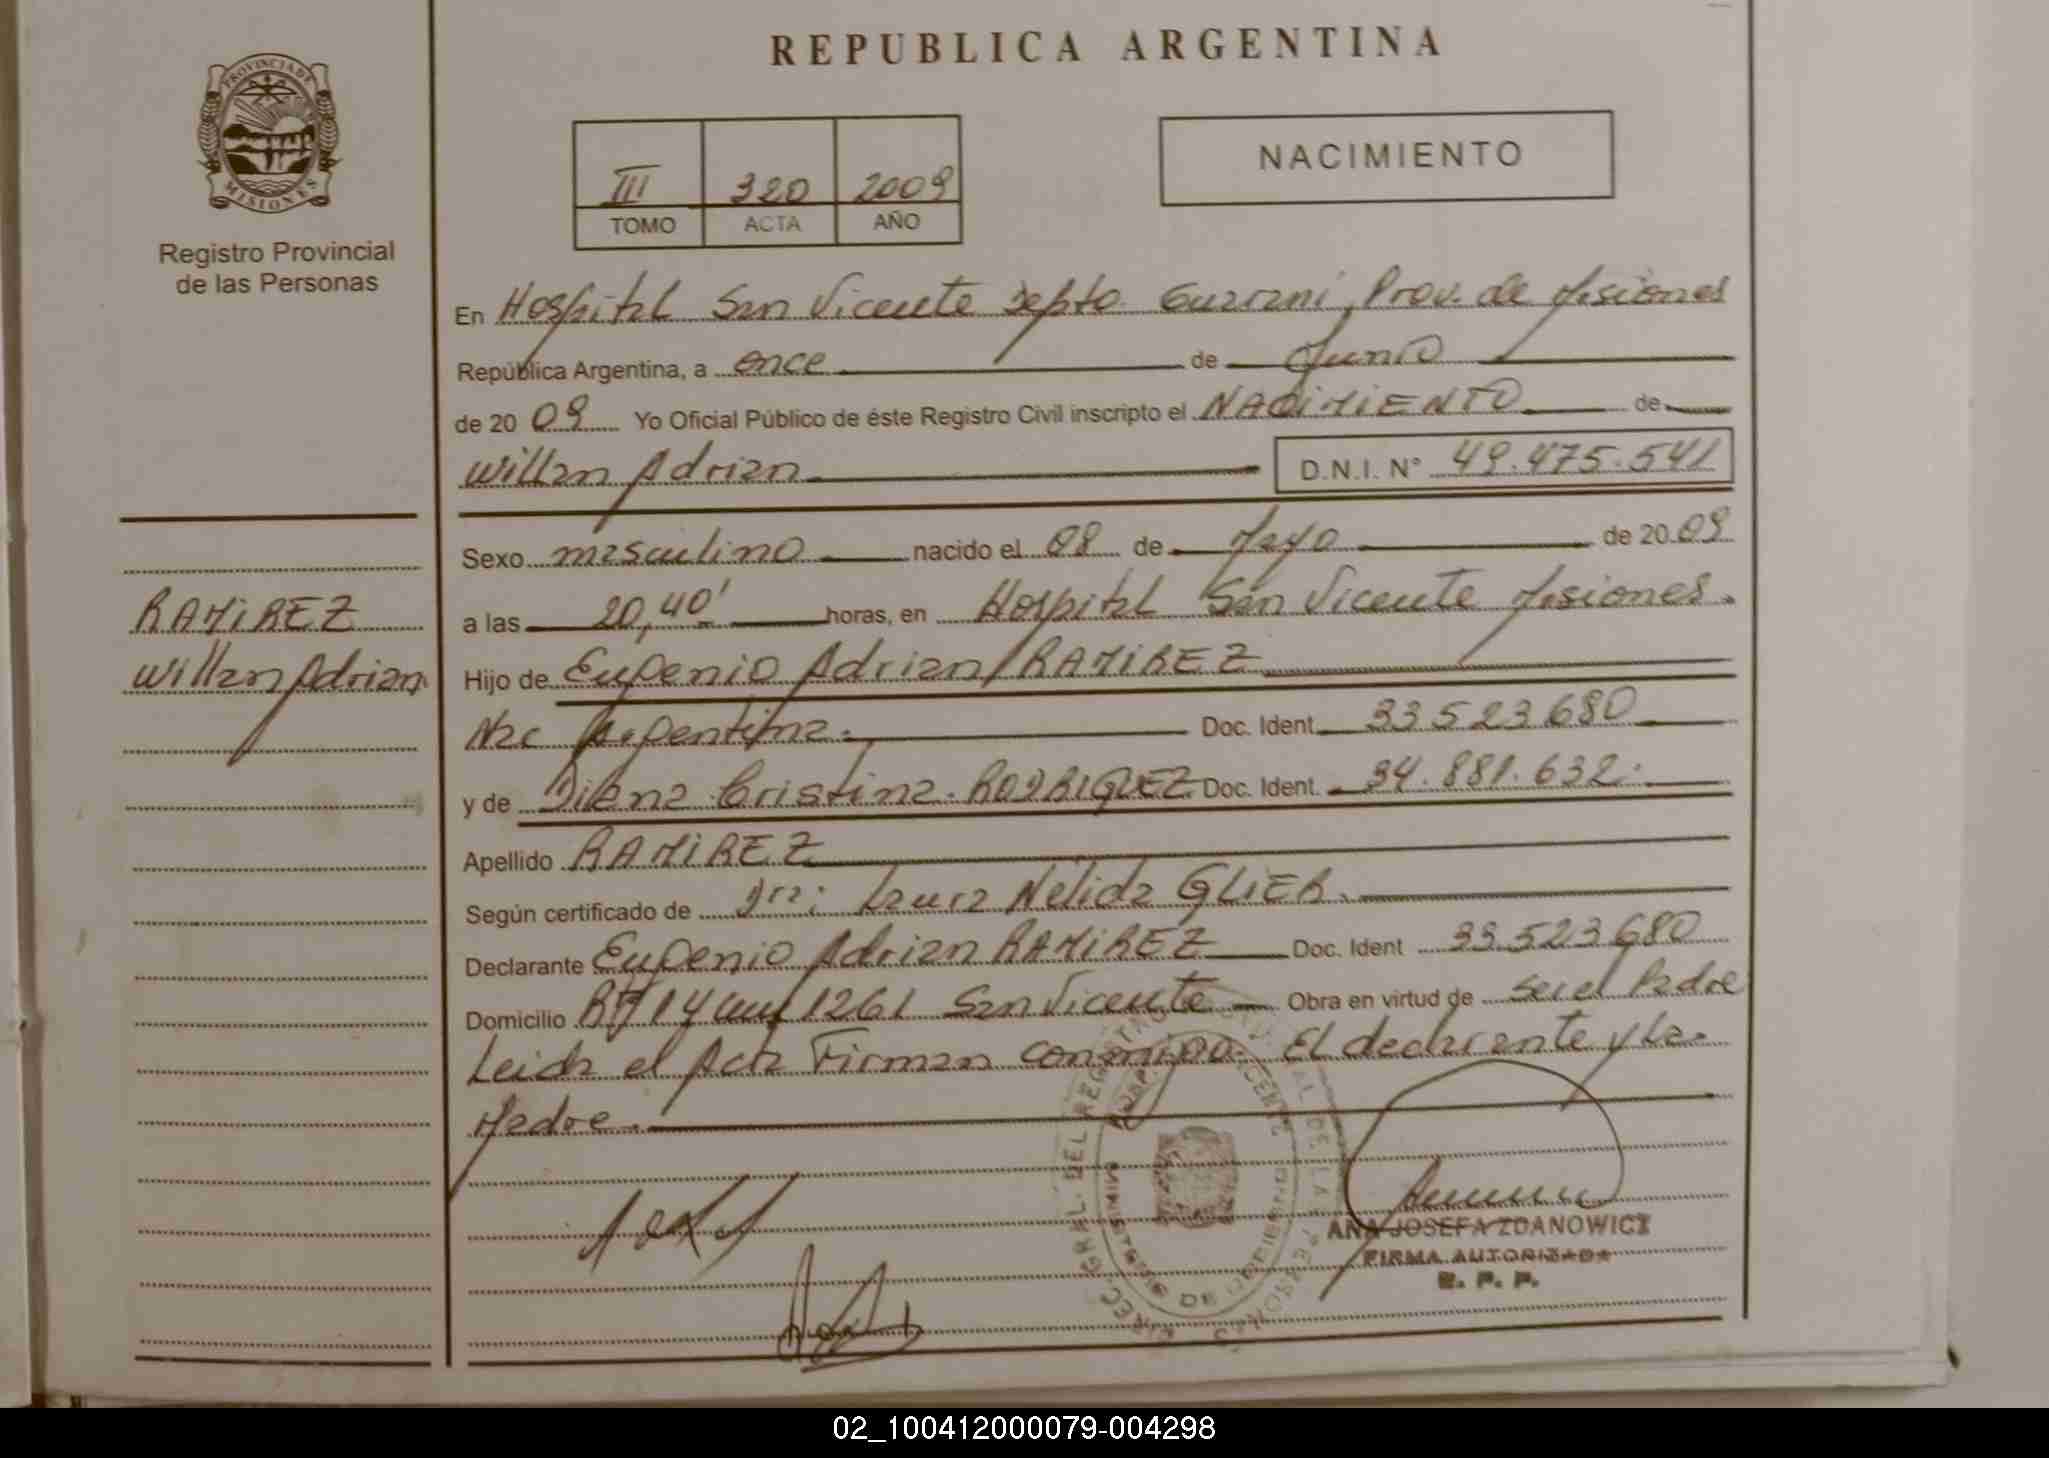 REPUBLICA ARGENTINA
PROVINCIA DE
MISIONES
Registro Provincial
de las Personas
III 320 2009
TOMO ACTA AÑO
NACIMIENTO
En Hospital San Vicente Depto. Guarani, Prov. de Misiones
República Argentina, a once de Junio
de 2009 Yo Oficial Público de éste Registro Civil inscripto el NACIMIENTO de
Willan Adrian D.N.I. N° 49.475.541
RAMIREZ
Willan Adrian
Sexo masculino nacido el 08 de Mayo de 2009
a las 20,40' horas, en Hospital San Vicente Misiones.
Hijo de Eugenio Adrian RAMIREZ
Nac Argentina. Doc. Ident. 33523680
y de Cristina RODRIGUEZ Doc. Ident. 34.881.632.
Apellido RAMIREZ
Según certificado de Dra: Laura Nelida GLIER.
Declarante Eugenio Adrian RAMIREZ Doc. Ident 33.523680
Domicilio 14 1261 San Vicente Obra en virtud de ser el Padre
Leida el Acta Firman conmigo. El declarante y la
Madre.
ANA JOSEFA ZDANOWICZ
FIRMA AUTORIZADA
R. P. P.
02_100412000079-004298